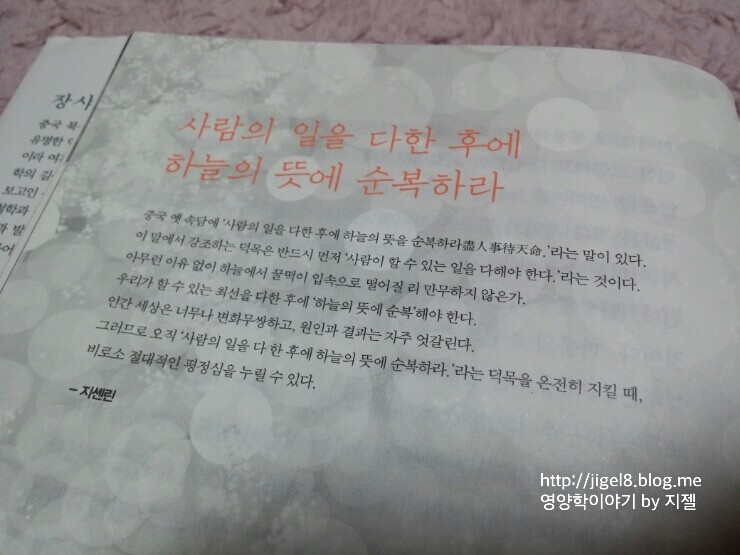 장 사
중국 북
유명한
이라 여
학의 길
보고인
철학과
과 발
사람의 일을 다한 후에
하늘의 뜻에 순복하라
중국 옛 속담에 '사람의 일을 다한 후에 하늘의 뜻을 순복하라盡人事待天命.'라는 말이 있다.
이 말에서 강조하는 덕목은 반드시 먼저 '사람이 할 수 있는 일을 다해야 한다.'라는 것이다.
아무런 이유 없이 하늘에서 꿀떡이 입속으로 떨어질 리 만무하지 않은가.
우리가 할 수 있는 최선을 다한 후에 '하늘의 뜻에 순복'해야 한다.
인간 세상은 너무나 변화무쌍하고, 원인과 결과는 자주 엇갈린다.
그러므로 오직 '사람의 일을 다 한 후에 하늘의 뜻에 순복하라.'라는 덕목을 온전히 지킬 때,
비로소 절대적인 평정심을 누릴 수 있다.
– 지셴린
http://jigel8.blog.me
영양학이야기 by 지젤